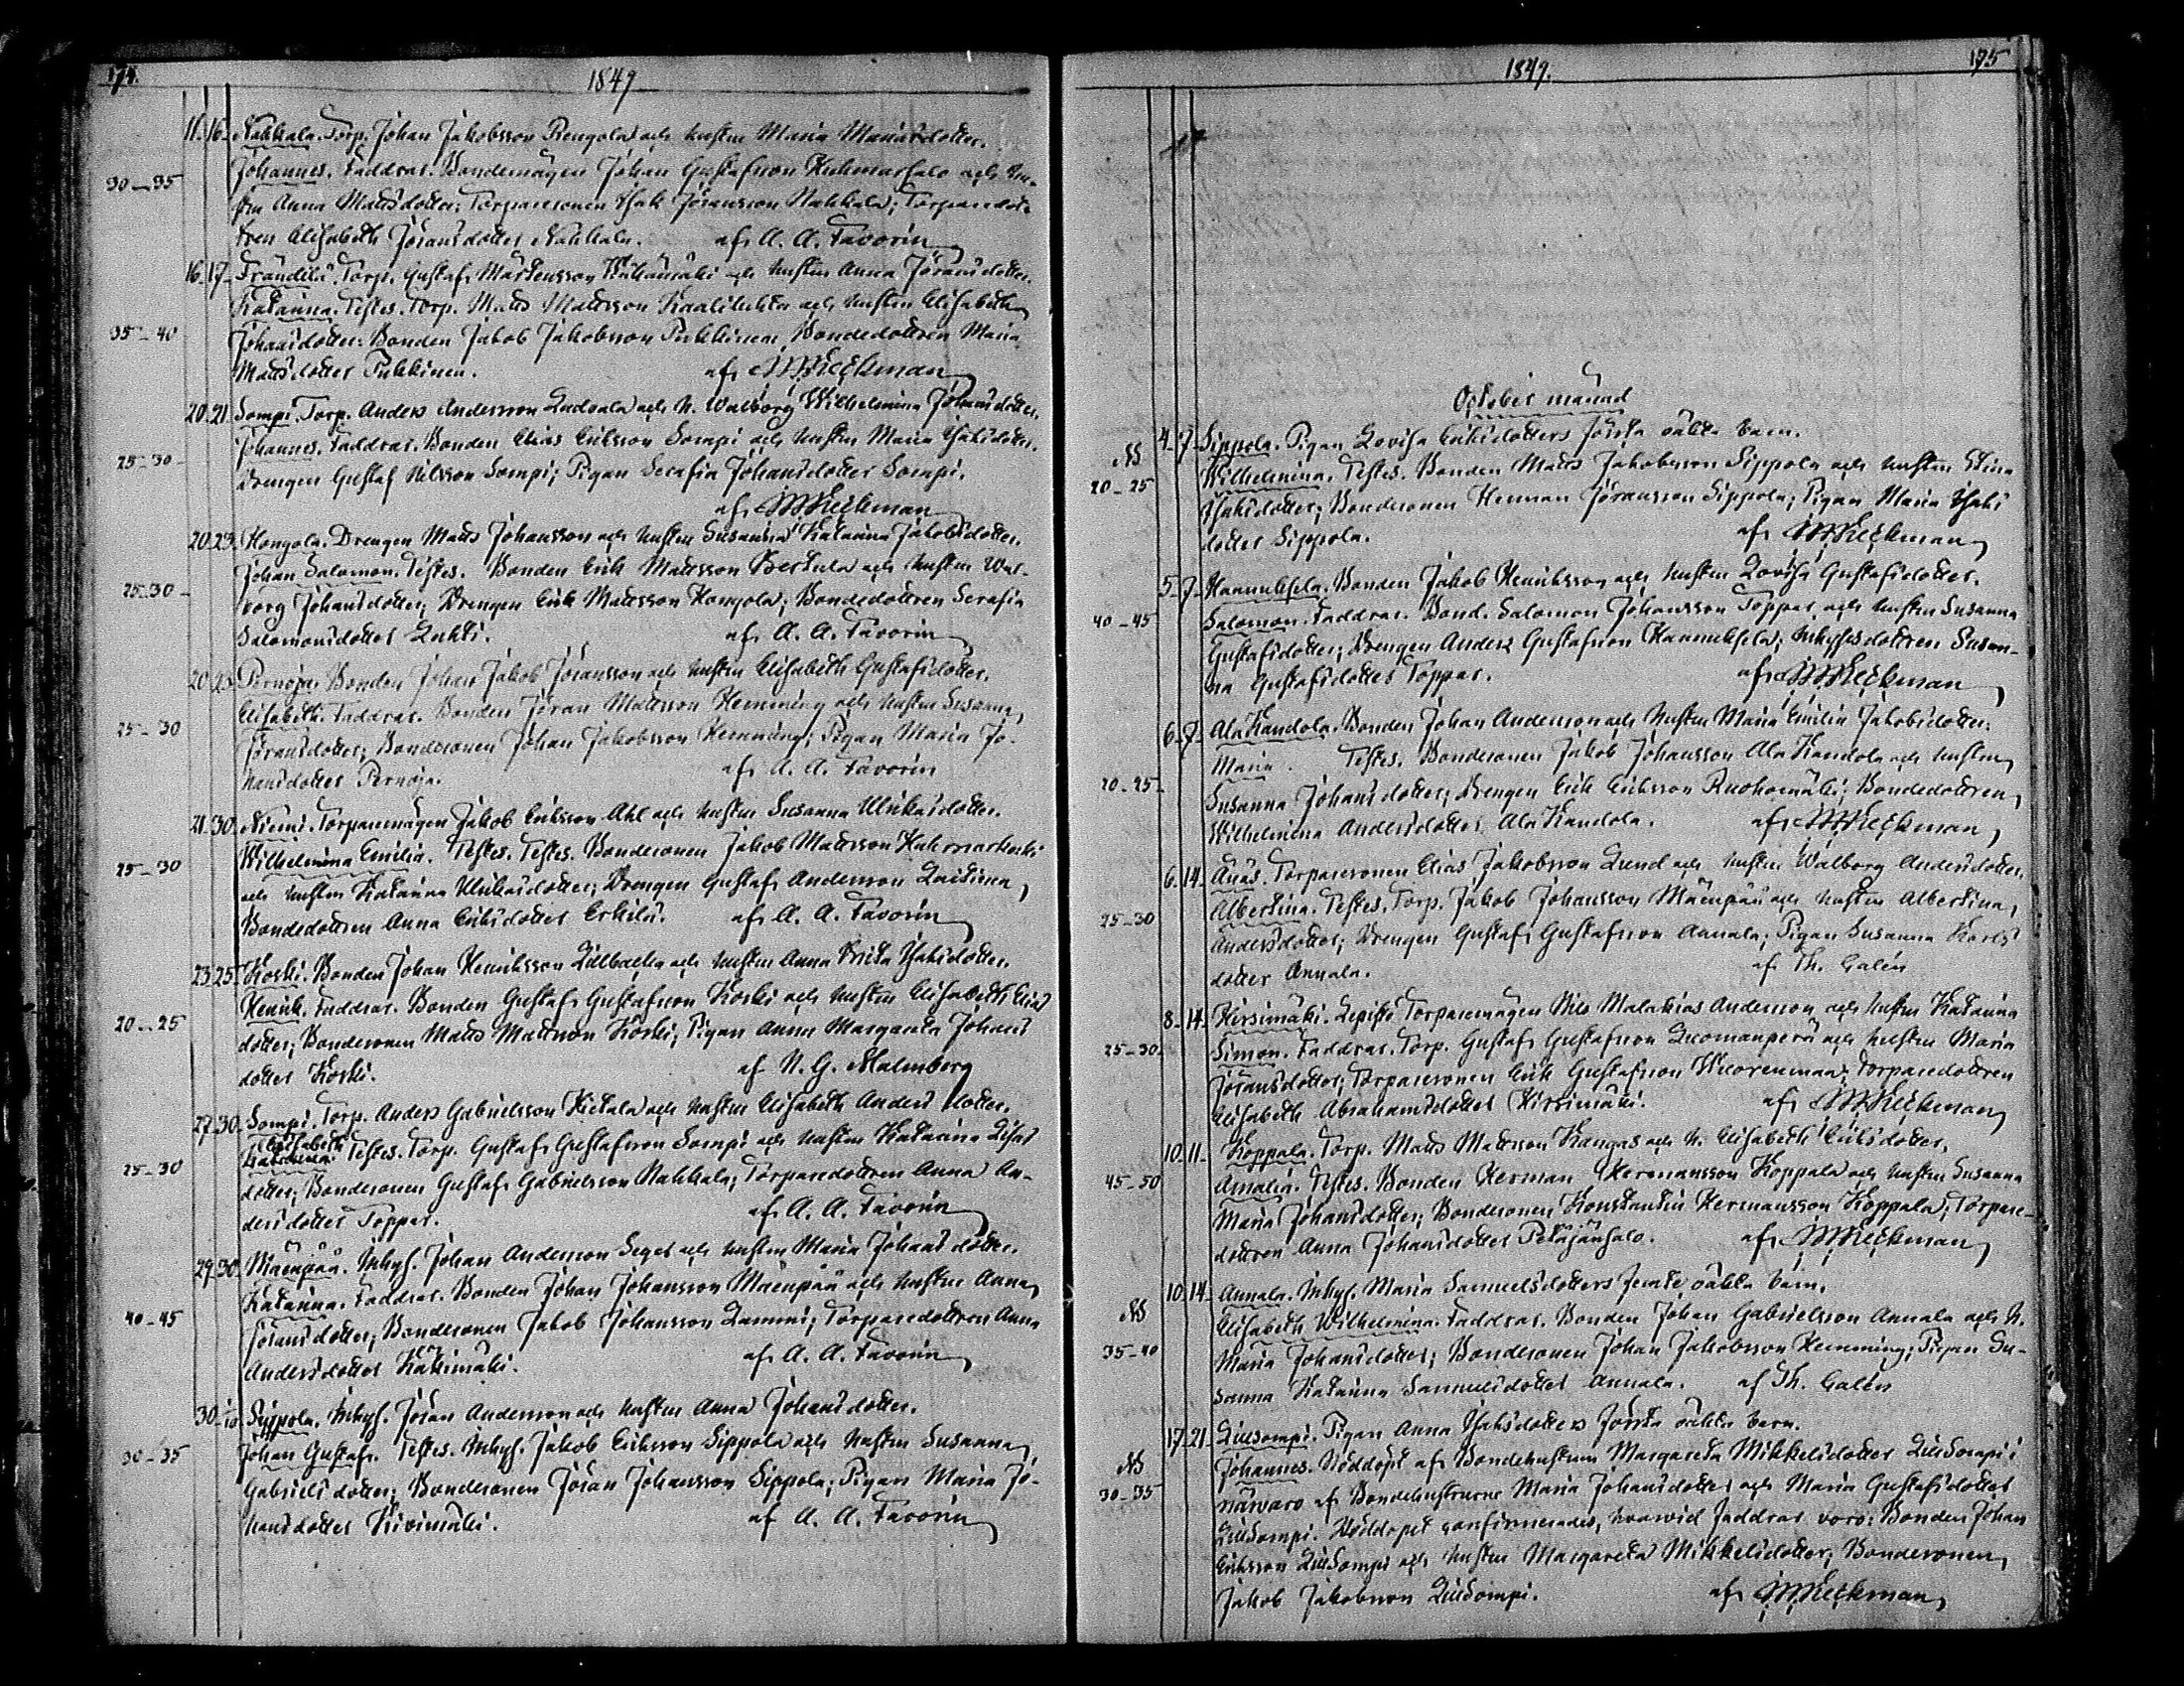 174.
1849
11. 16. Nahkala. Torp. Johan Jakobsson Rengola och hustru Maria Mariæ dotter.
Johannes. Faddrar. Bondemågen Johan Gustafsson Kuhmosalo och hu-
30-35
stru Anna Mattsdotter; Torparesonen Isak Jöransson Nahkala; Torparedot-
tren Elisabeth Jöransdotter Nahkala. af A. A. Favorin
16. 17. Frändilä. Torp. Gustaf Mårtensson Wähämäki och hustru Anna Jöransdotter.
Katarina. Testes. Torp. Matts Mattsson Kaalilehto och hustru Elisabeth
35-40
Johansdotter; Bonden Jakob Jakobsson Pukkinen, Bondedottren Maria
Mattsdotter Pukkinen. af M Keckman
20. 21. Sompi. Torp. Anders Andersson Ladvala och h. Walborg Wilhelmina Johansdotter.
Johannes. Faddrar. Bonden Elias Eriksson Sompi och hustru Maria Isaksdotter.
25-30
Drengen Gustaf Nilsson Sompi; Pigan Serafia Johansdotter Sompi.
af M Keckman
20. 23. Hongola. Drengen Matts Johansson och hustru Susanna Katarina Jakobsdotter.
Johan Salomon. Testes. Bonden Erik Mattsson Perttula och hustru Wal-
25-30
borg Johansdotter; Drengen Erik Mattsson Hongola; Bondedottren Serafia
Salomonsdotter Lahti. af A. A. Favorin
20. 23. Pernoja. Bonden Johan Jakob Jöransson och hustru Elisabeth Gustafsdotter.
Elisabeth. Faddrar. Bonden Jöran Mattsson Hemming och hustru Susanna
25-30
Jöransdotter; Bondesonen Johan Jakobsson Hemming; Pigan Maria Jo-
hansdotter Pernoja. af A. A. Favorin
21. 30. Niemi. Torparemågen Jakob Eriksson Ahl och hustru Susanna Ulrikasdotter.
Wilhelmina Emilia. Testes. Testes. Bondesonen Jakob Mattsson
25-30
och hustru Katarina Ulrikasdotter; Drengen Gustaf Andersson Laitinen,
Bondedottren Anna Eriksdotter Erkilä. af A. A. Favorin
23. 25. Koski. Bonden Johan Henriksson Lillbacka och hustru Anna Brita Isaksdotter.
Henrik. Faddrar. Bonden Gustaf Gustafsson Koski och hustru Elisabeth Elias
20-25
dotter; Bondesonen Matts Mattsson Koski; Pigan Anna Margareta Johans
dotter Koski. af N. G. Malmberg
27. 30. Sompi. Torp. Anders Gabrielsson Kietala och hustru Elisabeth Anders dotter.
Elisabeth
Katarina. Testes. Torp. Gustaf Gustafsson Sompi och hustru Katarina Lisas
25-30
dotter; Bondesonen Gustaf Gabrielsson Nahkala; Torparedottren Anna An-
dersdotter Toppar. af A. A. Favorin
29. 30. Mäenpää. Inhys. Johan Andersson Seger och hustru Maria Johans dotter.
Katarina. Faddrar. Bonden Johan Johansson Mäenpää och hustru Anna
40-45
Jöransdotter; Bondesonen Jakob Johansson Lammi; Torparedottren Anna
Andersdotter Kattimäki. af A. A. Favorin
30. 10. Sippola. Inhys. Jöran Andersson och hustru Anna Johansdotter.
Johan Gustaf. Testes. Inhys. Jakob Eriksson Sippola och hustru Susanna
30-35
Gabriels dotter; Bondesonen Jöran Johansson Sippola; Pigan Maria Jo-
hansdotter Kivimäki. af A. A. Favorin
175
1849.
October månad
4. 7. Sippola. Pigan Lovisa Eriksdotters första oäkta barn.
NB
Wilhelmina. Testes. Bonden Matts Jakobsson Sippola och hustru Stina
20-25
Isaksdotter; Bondesonen Herman Jöransson Sippola; Pigan Maria Isaks
dotter Sippola. af M Keckman
5. 7. Haanukkela. Bonden Jakob Henriksson och hustru Lovisa Gustafsdotter.
40-45
Salomon. Faddrar. Bond. Salomon Johansson Toppar och hustru Susanna
Gustafsdotter; Drengen Anders Gustafsson Haanukkela; Inhysesdottren Susan-
na Gustafsdotter Toppar. af M Keckman
6. 7. Ala Kandola. Bonden Johan Andersson och hustru Maria Emilia Jakobsdotter:
Maria. Testes. Bondesonen Jakob Johansson Ala Kandola och hustru
20-25
Susanna Johansdotter; Drengen Erik Eriksson Ruohomäki; Bondedottren
Wilhelmina Andersdotter Ala Kandola. af M Keckman
6. 14. Ånäs. Torparesonen Elias Jakobsson Lund och hustru Walborg Andersdotter.
25-30
Albertina. Testes. Torp. Jakob Johansson Mäenpää och hustru Albertina
Andersdotter; Drengen Gustaf Gustafsson Annala; Pigan Susanna Karls
dotter Annala. af Th. Galén
8. 14. Hirsimäki. Lepistö Torparemågen Nils Malakias Andersson och hustru Katarina
25-30
Simon. Faddrar. Torp. Gustaf Gustafsson Luomanperä och hustru Maria
Jöransdotter; Torparesonen Erik Gustafsson Wuorenmaa; Torparedottren
Elisabeth Abrahamsdotter Hirsimäki. af M Keckman
10. 11. Koppala. Torp. Matts Mattsson Kangas och h. Elisabeth Eriksdotter.
45-50
Amalia. Testes. Bonden Herman Hermansson Koppala och hustru Susanna
Maria Johansdotter; Bondesonen Konstantin Hermansson Koppala; Torpare-
dottren Anna Johansdotter Petäjänsalo. af M Keckman
10. 14. Annala. Inhys. Maria Samuelsdotters femte oäkta barn.
NB
Elisabeth Wilhelmina. Faddrar. Bonden Johan Gabrielsson Annala och h.
35-40
Maria Johansdotter; Bondesonen Johan Jakobsson Hemming; Pigan Su-
sanna Katarina Samuelsdotter Annala. af Th. Galén
17. 21. Liilsompi. Pigan Anna Isaksdotters första oäkta barn.
NB
Johannes. Nöddöpt af Bondehustrun Margareta Mikkelsdotter Liilsompi i
30-35
närvaro af Bondehustrurne Maria Johansdotter och Maria Gustafsdotter
Liilsompi. Nöddopet confirmerades, hvarvid faddrar voro: Bonden Johan
Eriksson Liilsompi och hustru Margareta Mikkelsdotter; Bondesonen
Jakob Jakobsson Liilsompi. af M Keckman